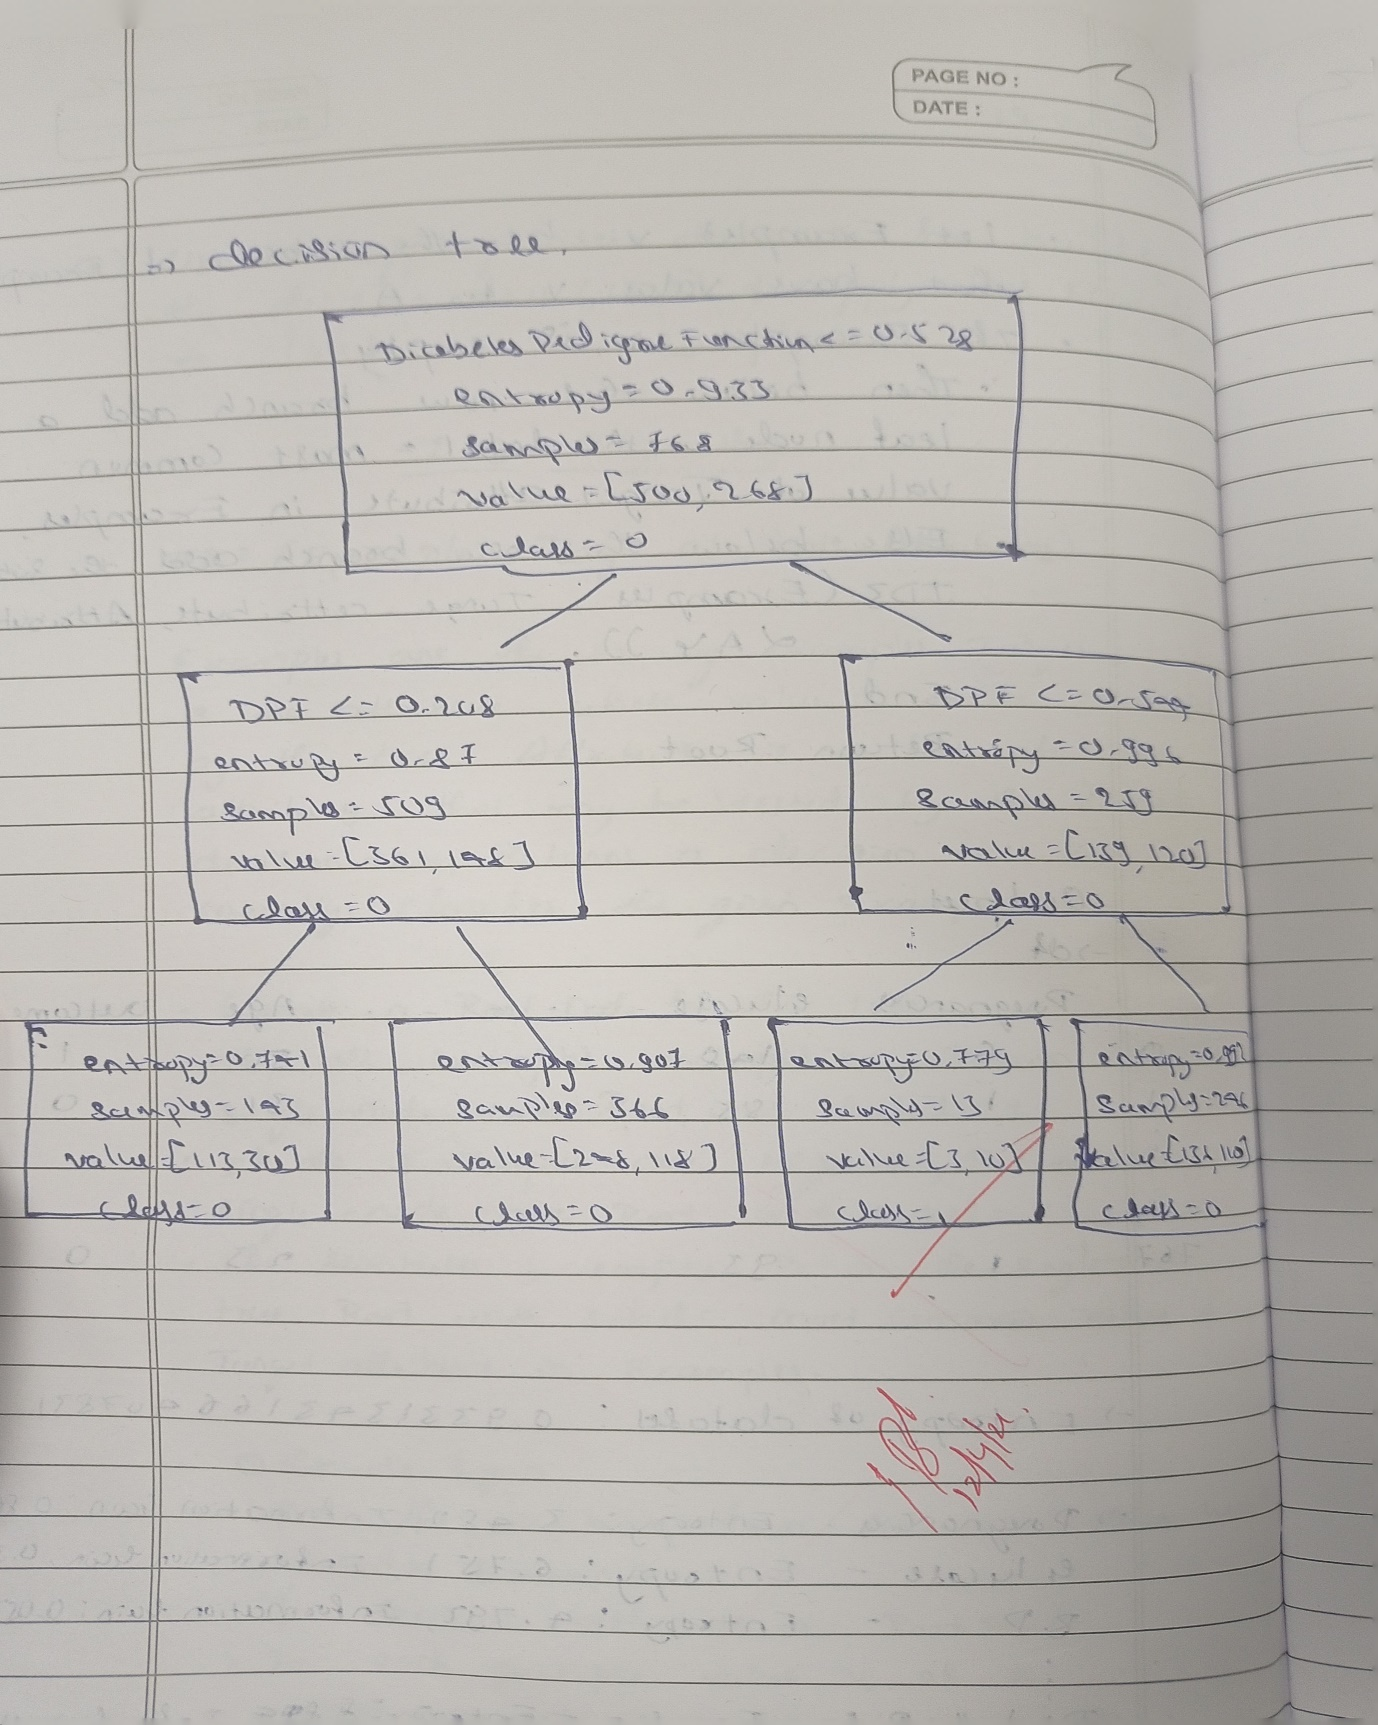 PAGE NO :
DATE :
=> decision tree.
Diabetes Pedigree Function <= 0.528
entropy = 0.933
samples = 768
value = [500, 268]
class = 0
DPF <= 0.208
entropy = 0.87
samples = 509
value = [361, 148]
class = 0
DPF <= 0.544
entropy = 0.996
samples = 259
value = [139, 120]
class = 0
entropy = 0.741
samples = 143
value = [113, 30]
class = 0
entropy = 0.907
samples = 366
value = [248, 118]
class = 0
entropy = 0.779
samples = 13
value = [3, 10]
class = 1
entropy = 0.992
samples = 246
value = [136, 110]
class = 0
12/4/21